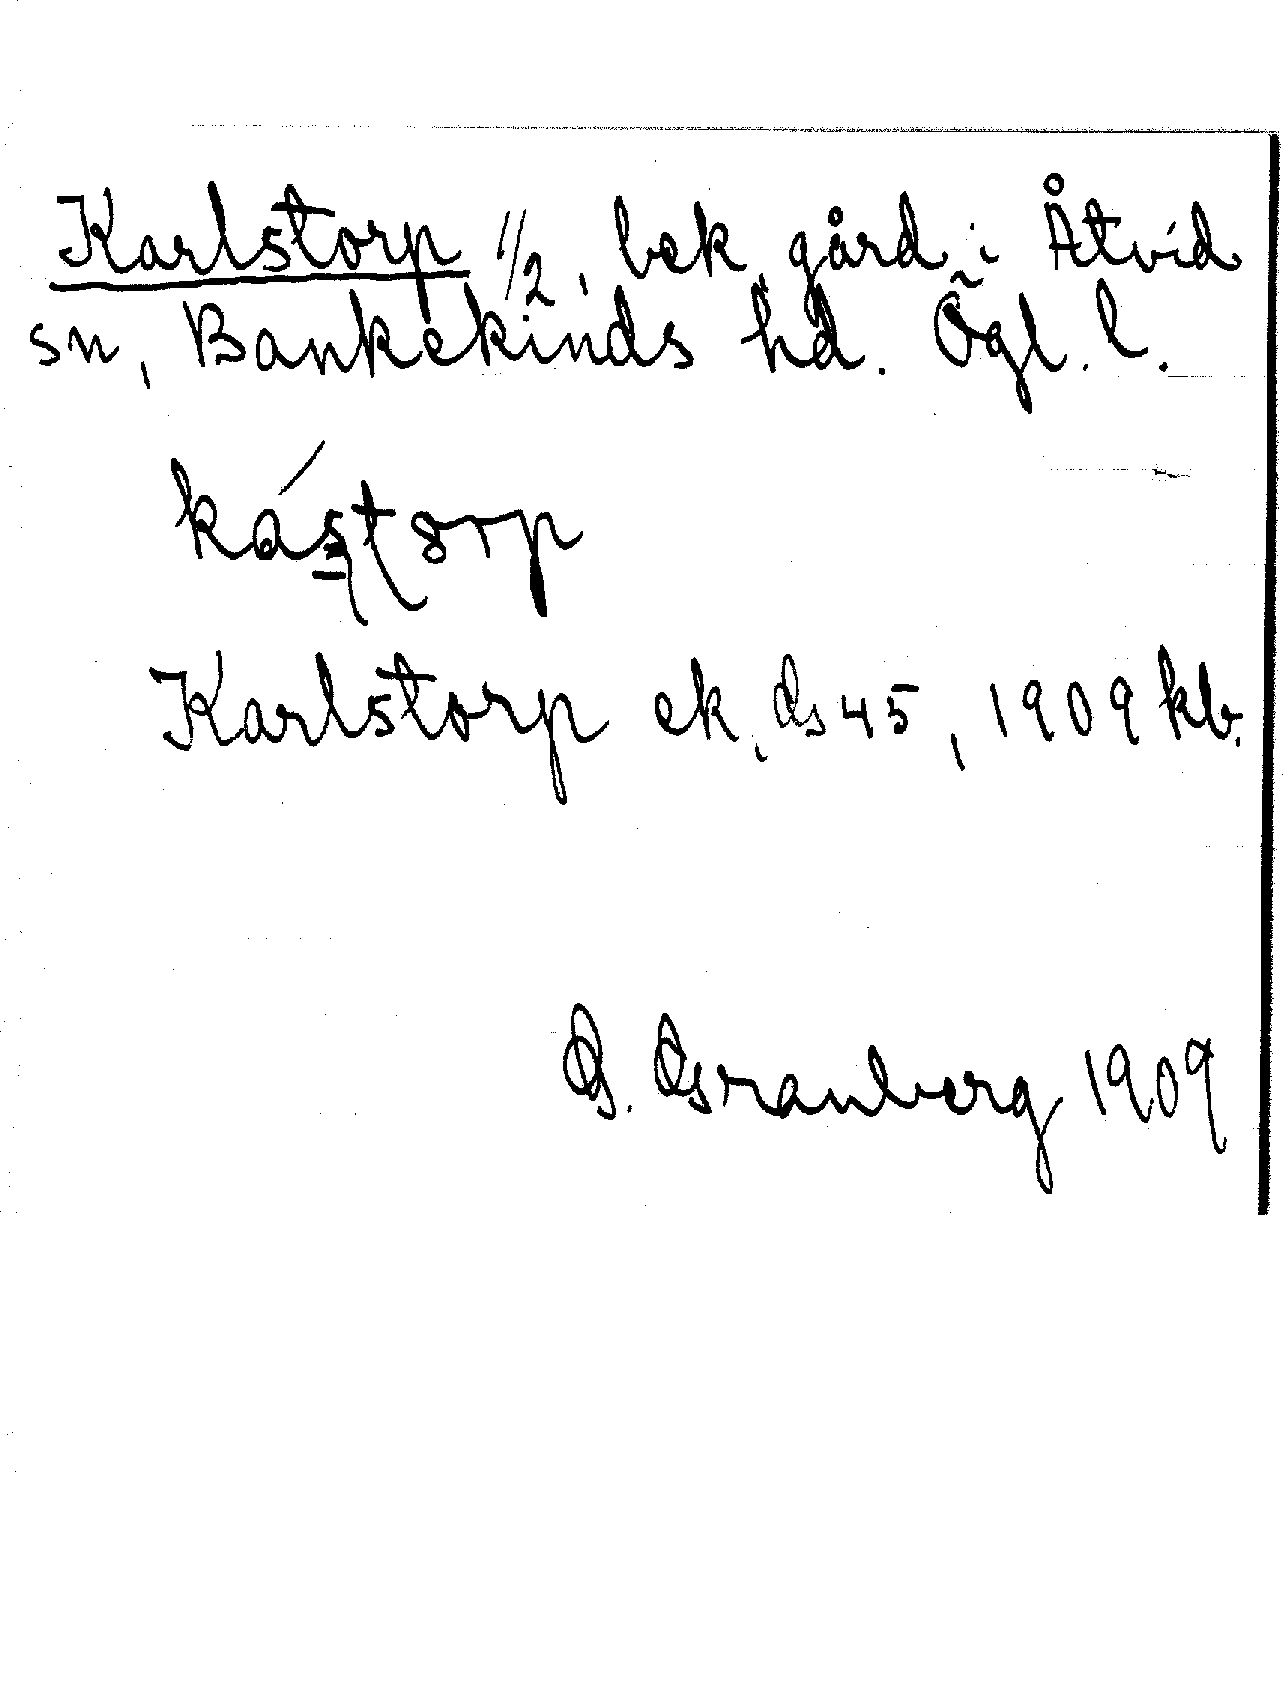 Karlstorp 1/2, bek. gård i Åtvid
sn, Bankekinds hd. Ögl. l.
Karlstorp ek. Gs 45, 1909 kb.
G. Granberg 1909